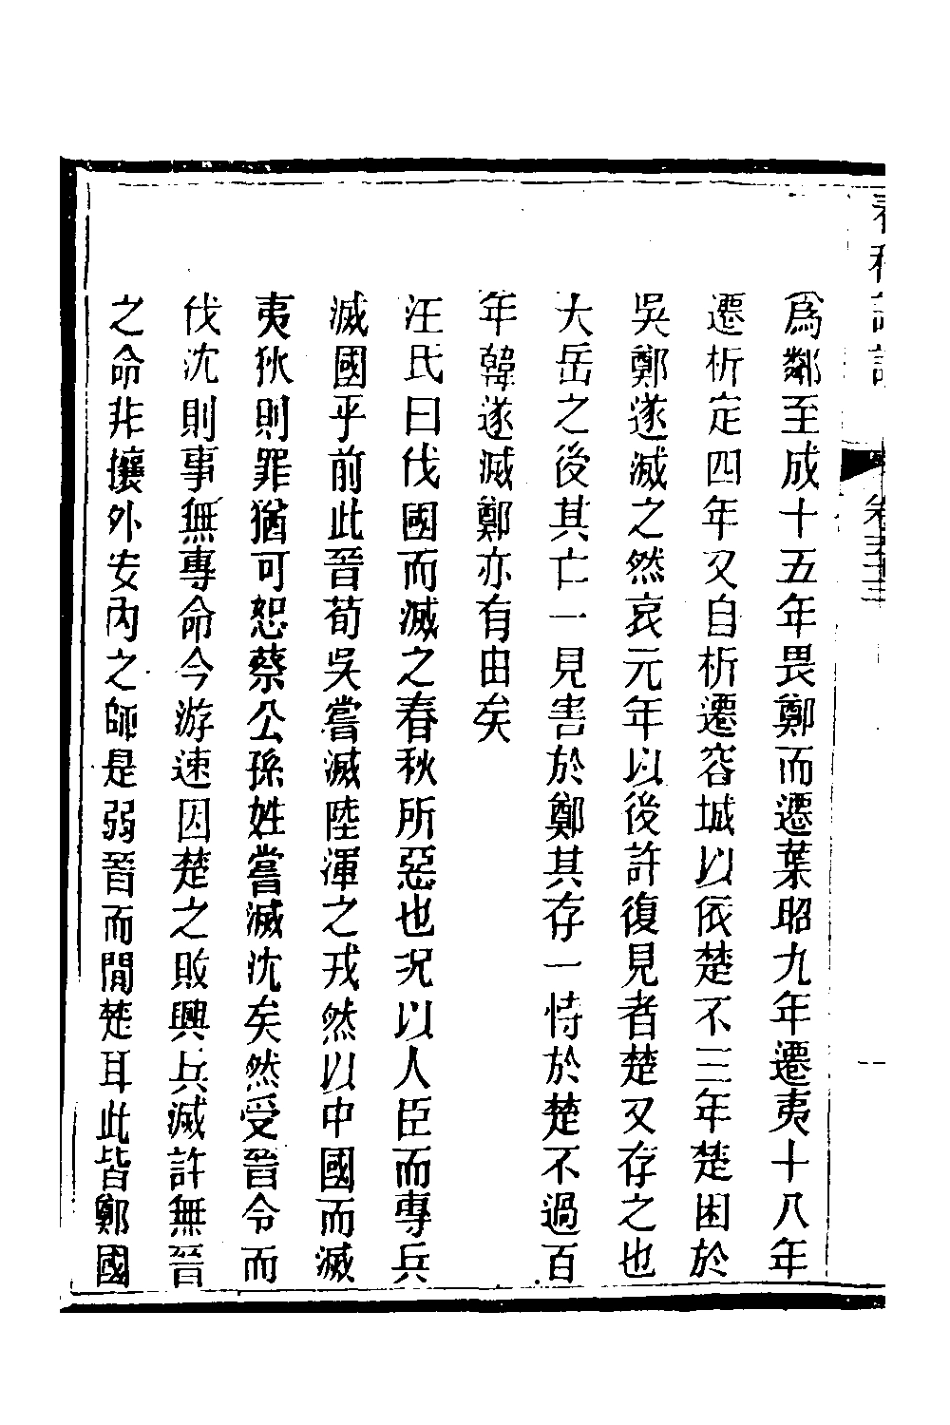 爲鄰至成十五年畏鄭而遷葉昭九年遷夷十八年
遷析定四年又自析遷容城以依楚不三年楚困於
吳鄭遂滅之然哀元年以後許復見者楚又存之也
大岳之後其亡一見害於鄭其存一恃於楚不過百
年韓遂滅鄭亦有由矣
汪氏曰伐國而滅之春秋所惡也况以人臣而專兵
滅國乎前此晉荀吳嘗滅陸渾之戎然以中國而滅
夷狄則罪猶可恕蔡公孫姓嘗滅沈矣然受晉令而
伐沈則事無專命今游速因楚之敗興兵滅許無晉
之命非攘外安內之師是弱晉而閒楚耳此皆鄭國